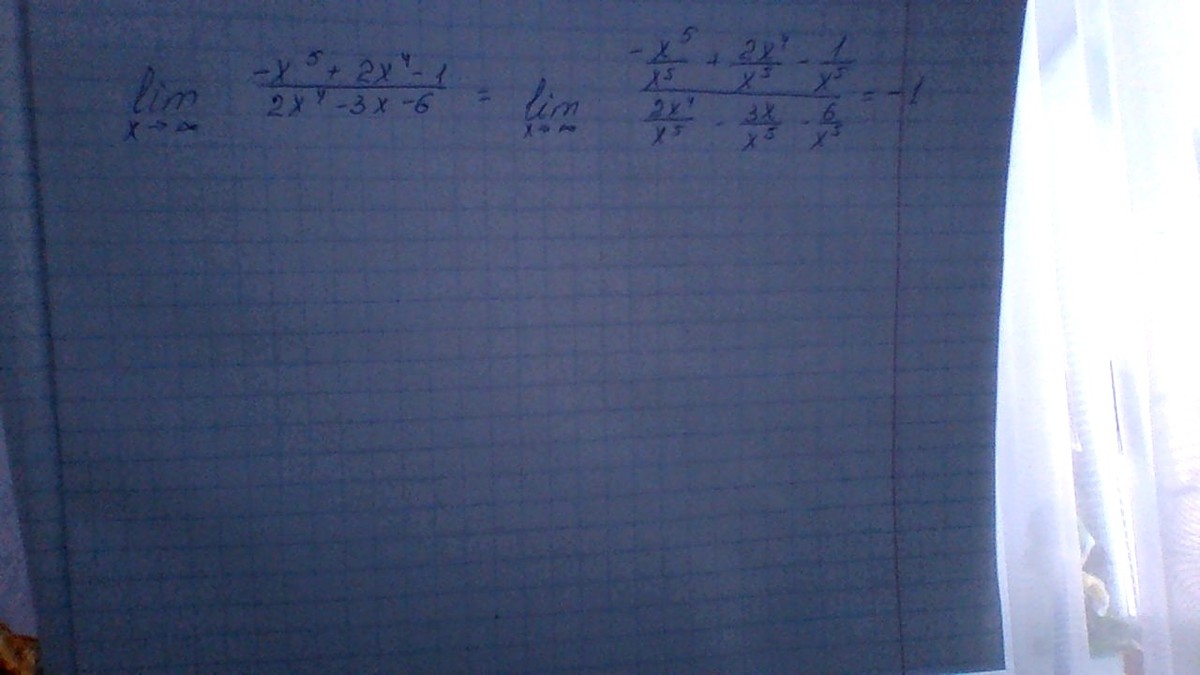 lim x→∞ (-x⁵ + 2x⁴ - 1)/(2x⁴ - 3x - 6) = lim x→∞ (-x⁵/x⁵ + 2x⁴/x⁵ - 1/x⁵)/(2x⁴/x⁵ - 3x/x⁵ - 6/x⁵) = -1